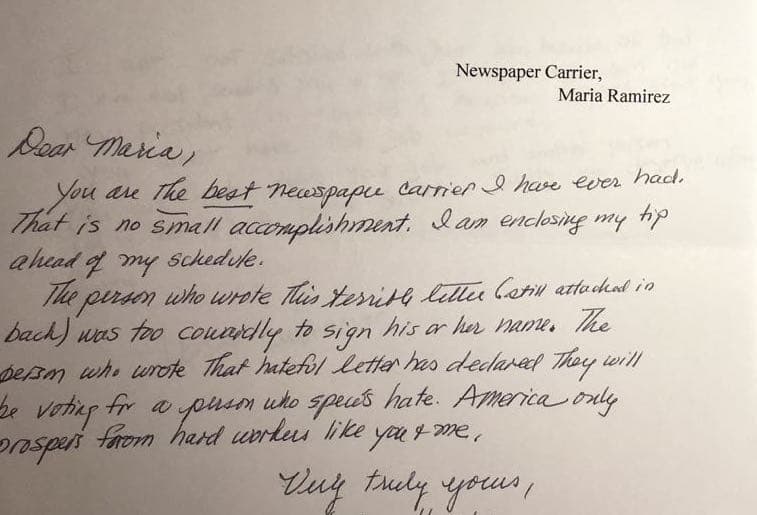 Newspaper Carrier,
Maria Ramirez
Dear Maria,
You are the best newspaper carrier I have ever had.
That is no small accomplishment. I am enclosing my tip
ahead of my schedule.
The person who wrote this terrible letter (still attached in
back) was too cowardly to sign his or her name. The
person who wrote that hateful letter has declared they will
be voting for a person who spews hate. America only
prospers from hard workers like you & me.
Very truly yours,